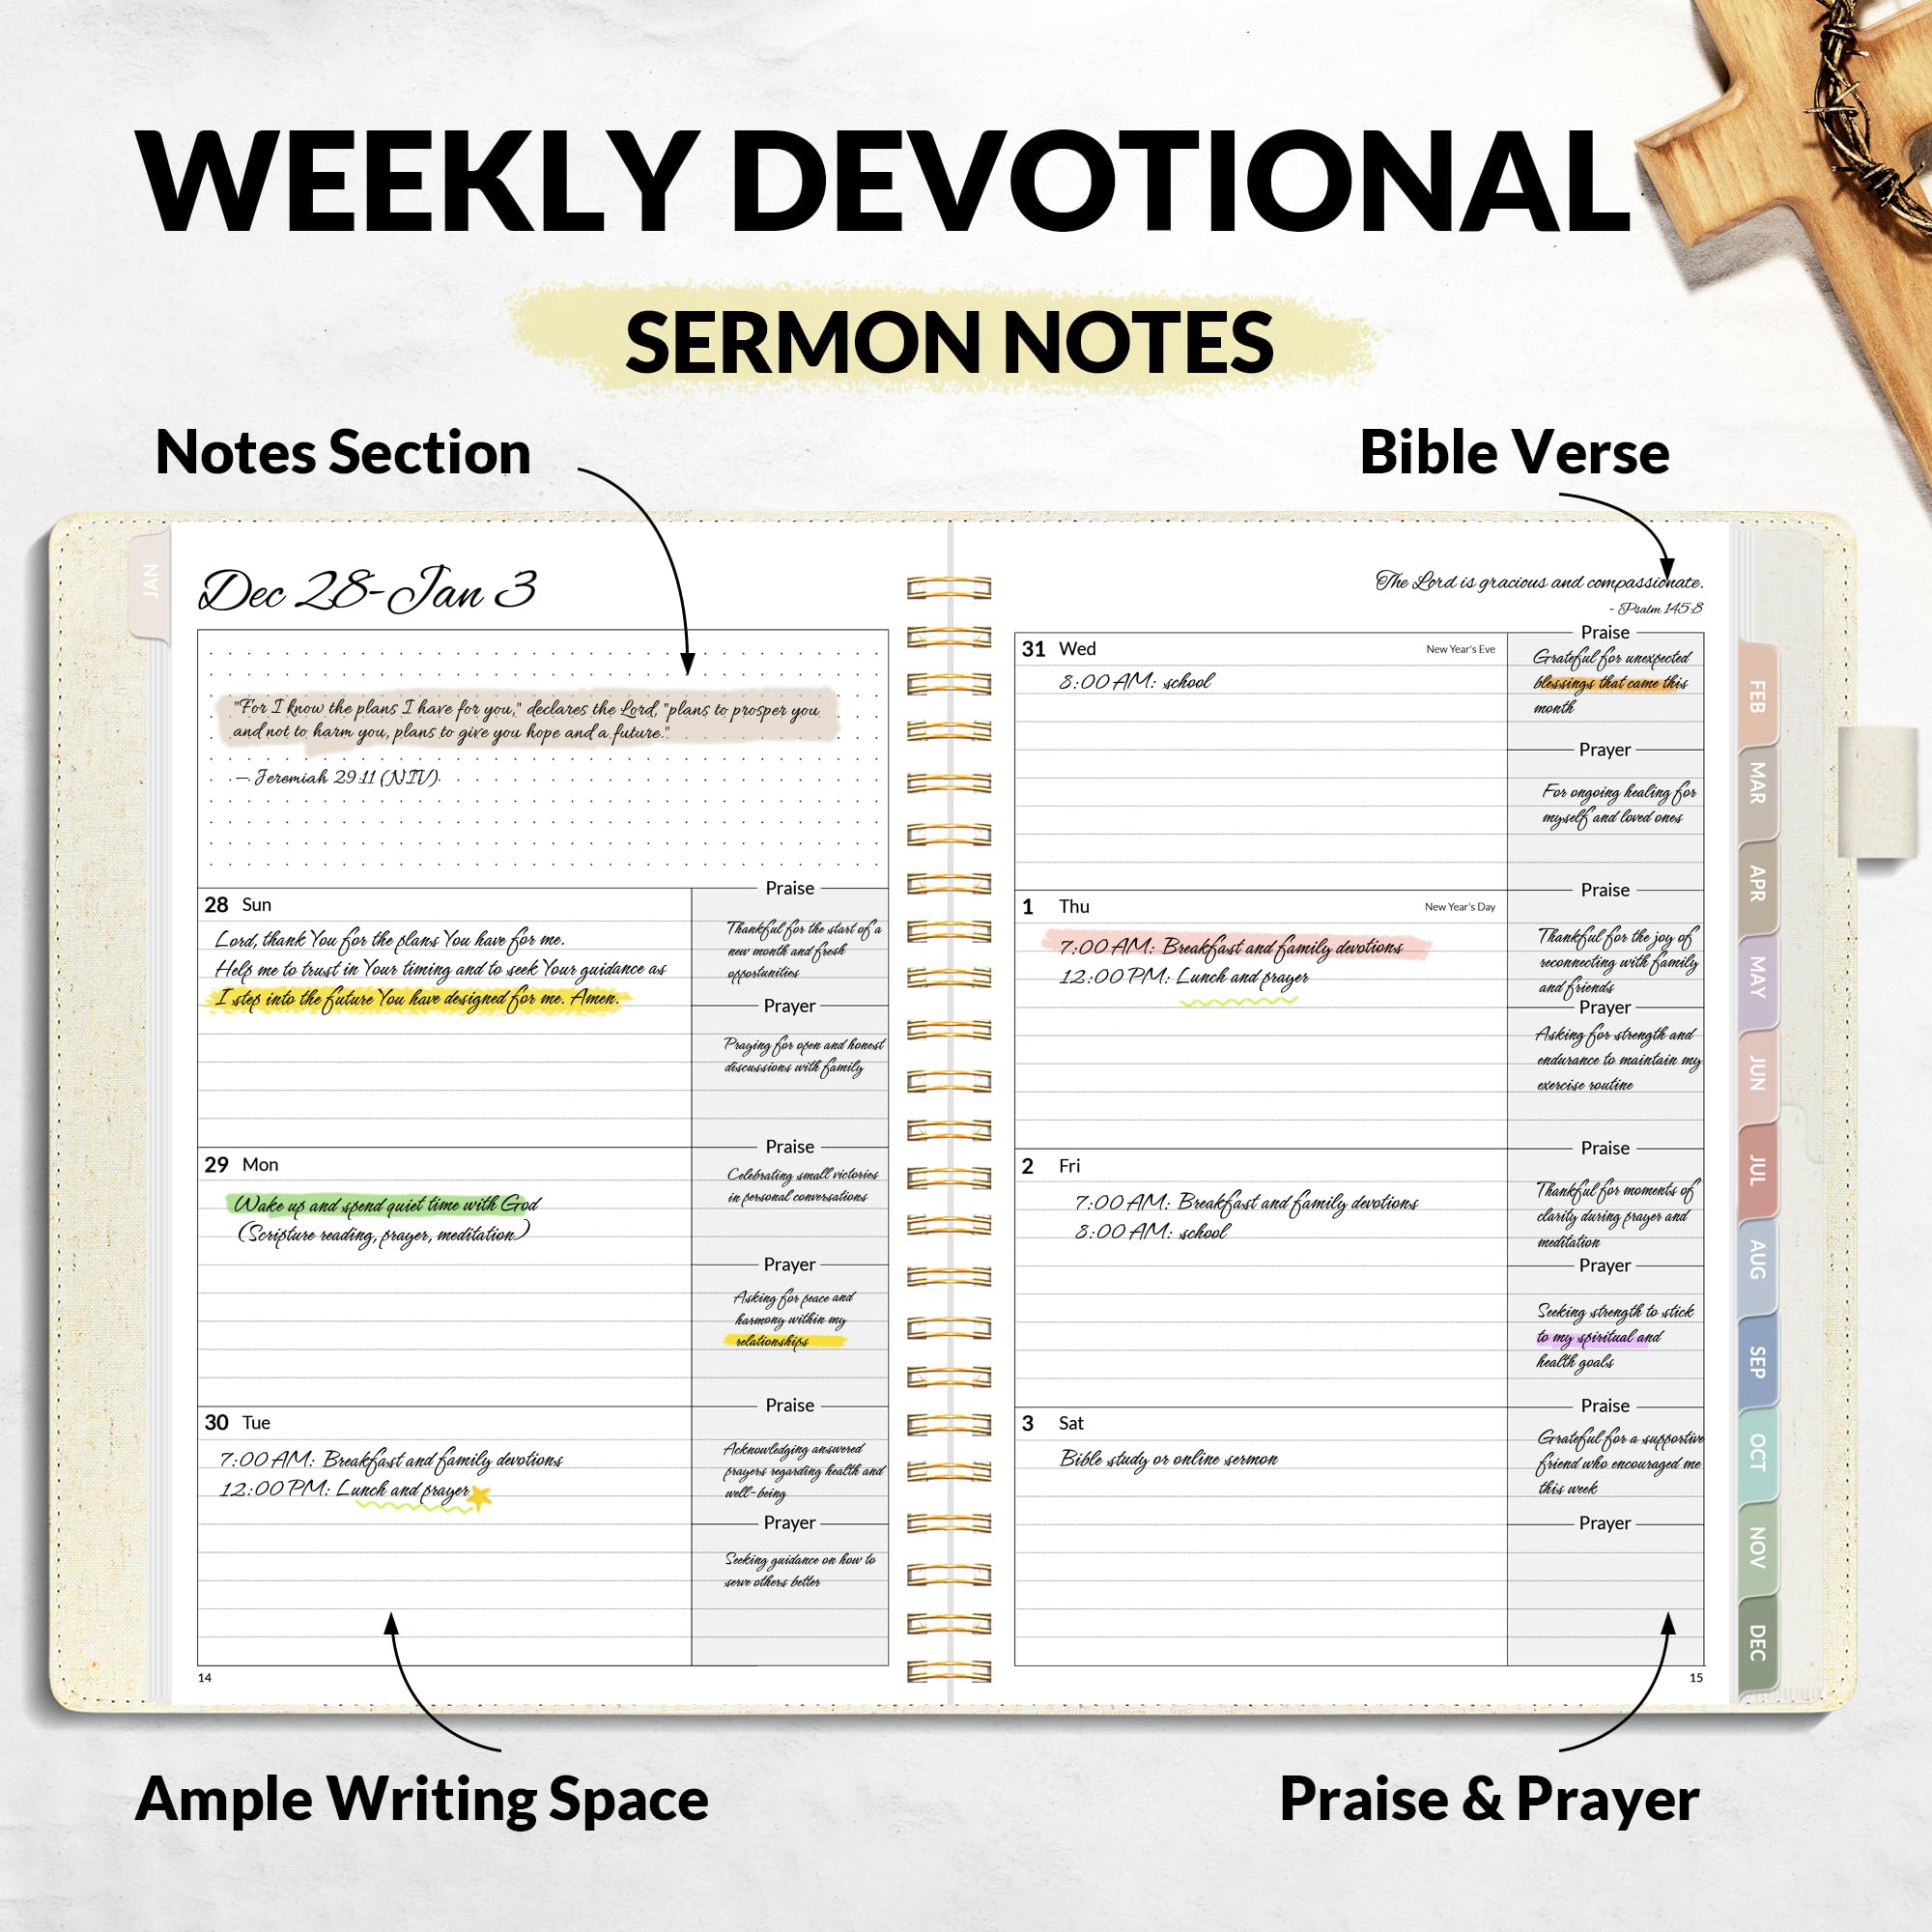 WEEKLY DEVOTIONAL
SERMON NOTES
Notes Section
Bible Verse
JAN
Dec 28-Jan 3
"For I know the plans I have for you," declares the Lord, "plans to prosper you
and not to harm you, plans to give you hope and a future."
— Jeremiah 29:11 (NIV)
28 Sun
Lord, thank You for the plans You have for me.
Help me to trust in Your timing and to seek Your guidance as
I step into the future You have designed for me. Amen.
Praise
Thankful for the start of a
new month and fresh
opportunities
Prayer
Praying for open and honest
discussions with family
29 Mon
Wake up and spend quiet time with God
(Scripture reading, prayer, meditation)
Praise
Celebrating small victories
in personal conversations
Prayer
Asking for peace and
harmony within my
relationships
30 Tue
7:00 AM: Breakfast and family devotions
12:00 PM: Lunch and prayer
Praise
Acknowledging answered
prayers regarding health and
well-being
Prayer
Seeking guidance on how to
serve others better
14
The Lord is gracious and compassionate.
- Psalm 145:8
31 Wed
New Year's Eve
8:00 AM: school
Praise
Grateful for unexpected
blessings that came this
month
Prayer
For ongoing healing for
myself and loved ones
1 Thu
New Year's Day
7:00 AM: Breakfast and family devotions
12:00 PM: Lunch and prayer
Praise
Thankful for the joy of
reconnecting with family
and friends
Prayer
Asking for strength and
endurance to maintain my
exercise routine
2 Fri
7:00 AM: Breakfast and family devotions
8:00 AM: school
Praise
Thankful for moments of
clarity during prayer and
meditation
Prayer
Seeking strength to stick
to my spiritual and
health goals
3 Sat
Bible study or online sermon
Praise
Grateful for a supportive
friend who encouraged me
this week
Prayer
15
FEB
MAR
APR
MAY
JUN
JUL
AUG
SEP
OCT
NOV
DEC
Ample Writing Space
Praise & Prayer